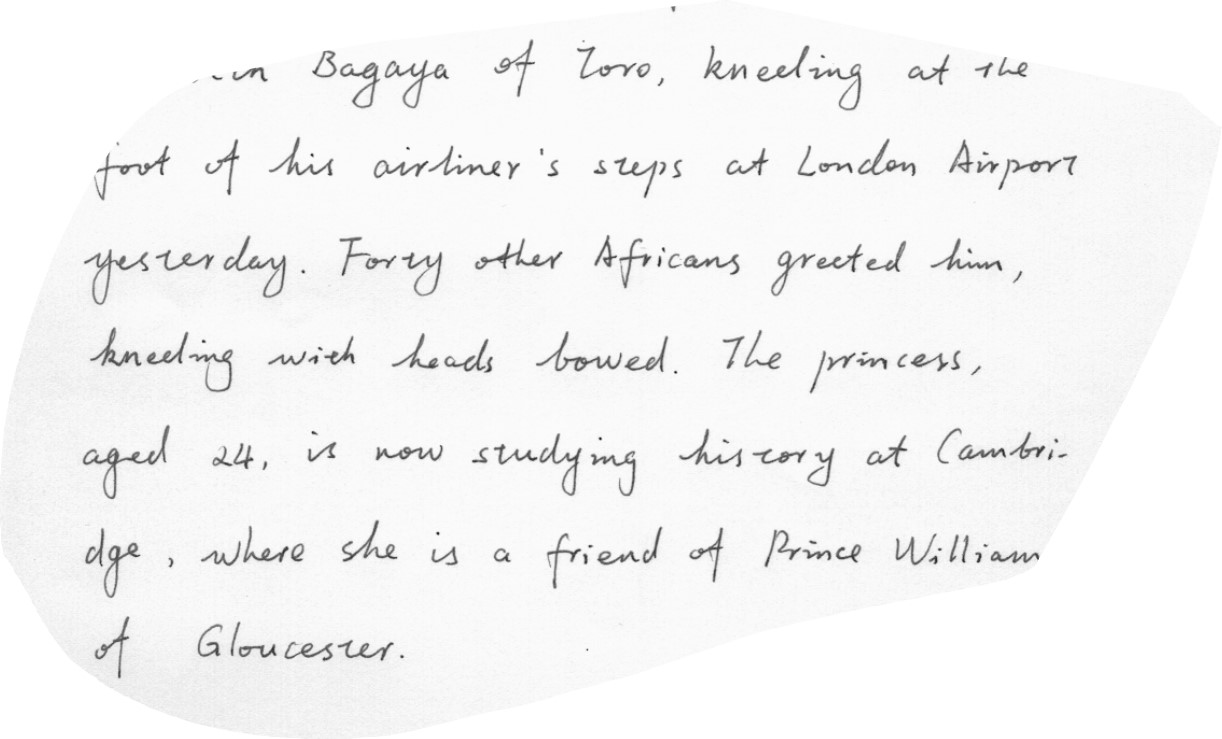 Bagaya of Toro, kneeling at the
foot of his airliner's steps at London Airport
yesterday. Forty other Africans greeted him,
kneeling with heads bowed. The princess,
aged 24, is now studying history at Cambri-
dge, where she is a friend of Prince William
of Gloucester.